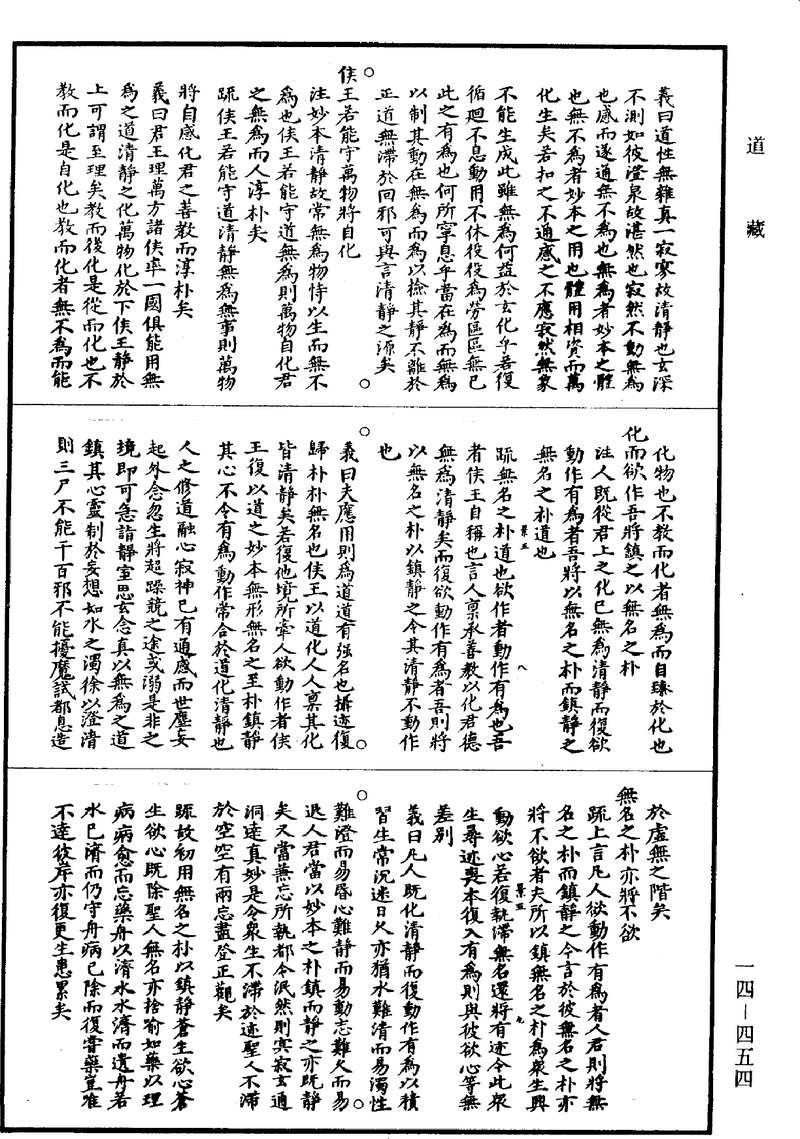 道藏
義曰道性無雜真一寂寥故清靜也玄深
不測如彼澄泉故湛然也寂然不動無為
也感而遂通無不為也無為者妙本之體
也無不為者妙本之用也體用相資而萬
化生矣若扣之不通感之不應寂然無象
不能生成此雖無為何益於玄化乎若復
循迴不息動用不休役役為勞區區無已
此之有為也何所寧息乎當在為而無為
以制其動在無為而為以檢其靜不離於
正道無滯於回邪可與言清靜之源矣
侯王若能守萬物將自化
注妙本清靜故常無為物恃以生而無不
為也侯王若能守道無為則萬物自化君
之無為而人淳朴矣
疏侯王若能守道清靜無為無事則萬物
將自感化君之善教而淳朴矣
義曰君王理萬方諸侯率一國俱能用無
為之道清靜之化萬物化於下侯王靜於
上可謂至理矣教而後化是從而化也不
教而化是自化也教而化者無不為而能
化物也不教而化者無為而自臻於化也
化而欲作吾將鎮之以無名之朴
注人既從君上之化已無為清靜而復欲
動作有為者吾將以無名之朴而鎮靜之
無名之朴道也
疏無名之朴道也欲作者動作有為也吾
者侯王自稱也言人稟承善教以化君德
無為清靜矣而復欲動作有為者吾則將
以無名之朴以鎮靜之令其清靜不動作
也
義曰夫應用則為道道有强名也攝迹復
歸朴朴無名也侯王以道化人人稟其化
皆清靜矣若復他境所牽人欲動作者侯
王復以道之妙本無形無名之至朴鎮靜
其心不令有為動作常合於道化清靜也
人之修道融心寂神已有通感而世塵妄
起外念忽生將趨躁競之途或溺是非之
境即可急詣靜室思玄念真以無為之道
鎮其心靈制於妄想如水之濁徐以澄清
則三尸不能干百邪不能擾魔試都息造
於虛無之階矣
無名之朴亦將不欲
疏上言凡人欲動作有為者人君則將無
名之朴而鎮靜之今言於彼無名之朴亦
將不欲者夫所以鎮無名之朴為衆生興
動欲心若復執滯無名還將有迹令此衆
生尋迹喪本復入有為則與彼欲心等無
差別
義曰凡人既化清靜而復動作有為以積
習生常沉迷日久亦猶水難清而易濁性
難澄而易昏心難靜而易動志難久而易
退人君當以妙本之朴鎮而靜之亦既靜
矣又當善忘所執都令泯然則冥寂玄通
洞達真妙是令衆生不滯於迹聖人不滯
於空空有兩忘盡登正觀矣
疏故初用無名之朴以鎮靜蒼生欲心蒼
生欲心既除聖人無名亦捨喻如藥以理
病病愈而忘藥舟以濟水水濟而遺舟若
水已濟而仍守舟病已除而復嘗藥豈唯
不達彼岸亦復更生患累矣
一四—四五四